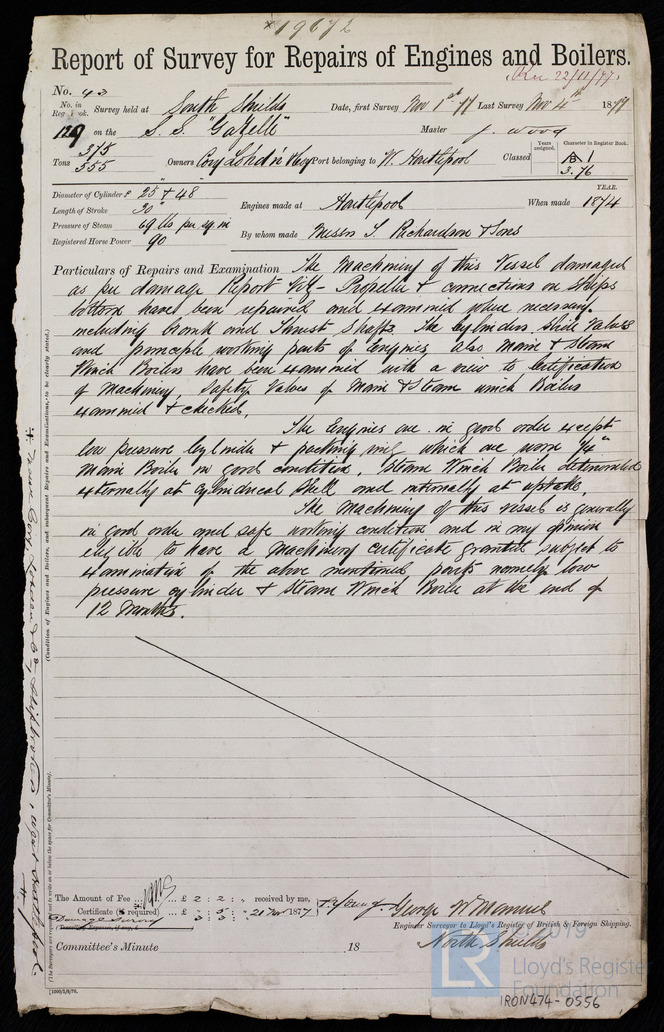 *19672
Report of Survey for Repairs of Engines and Boilers.
Rec 22/11/77.
No. 43
No. in Reg. Book. Survey held at South Shields Date, first Survey Nov 1st 77 Last Survey Nov 4th 1877
129 on the S.S. "Gazelle" Master J. Wood
Tons 375 555 Owners Port belonging to W. Hartlepool Classed Years assigned. Character in Register Book. 1 3.76
Diameter of Cylinders 25" + 48"
Length of Stroke 30"
Pressure of Steam 69 lbs per sq. in
Registered Horse Power 90
Engines made at Hartlepool When made YEAR. 1874
By whom made Messrs T. Richardson & Sons
Particulars of Repairs and Examination The Machinery of this Vessel damaged
as per damage Report Viz- Propeller & connections on Ships
bottom have been repaired and examined where necessary
including Crank and Thrust Shafts. The Cylinders Slide Valves
and principle working parts of Engines, also Main & Steam
Winch Boilers have been examined with a view to certification
of Machinery, Safety Valves of Main & Steam winch Boilers
examined & checked.
The Engines are in good order except
low pressure Cylinder & packing ring which are worn 1/4"
Main Boiler in good condition, Steam Winch Boiler deteriorated
externally at Cylindrical Shell and internally at uptake.
The Machinery of this vessel is generally
in good order and safe working condition and in my opinion
eligible to have a Machinery certificate granted subject to
examination of the above mentioned parts namely low
pressure cylinder & Steam Winch Boiler at the end of
12 Months.
(Condition of Engines and Boilers, and subsequent Repairs and Examinations, to be clearly stated.)
(The Surveyors are requested not to write on or below the space for Committee's Minute).
The Amount of Fee ... £ 2 : 2 : " received by me,
Certificate (if required) ... £ " : 5 : " 21 Nov 1877
Damage Survey 3 : 3 : "
T. Young George W Manuel
Engineer Surveyor to Lloyd's Register of British & Foreign Shipping.
North Shields
Committee's Minute 18
[1000/2/6/76.
© 2019
LR Lloyd's Register
Foundation
IRON474-0556